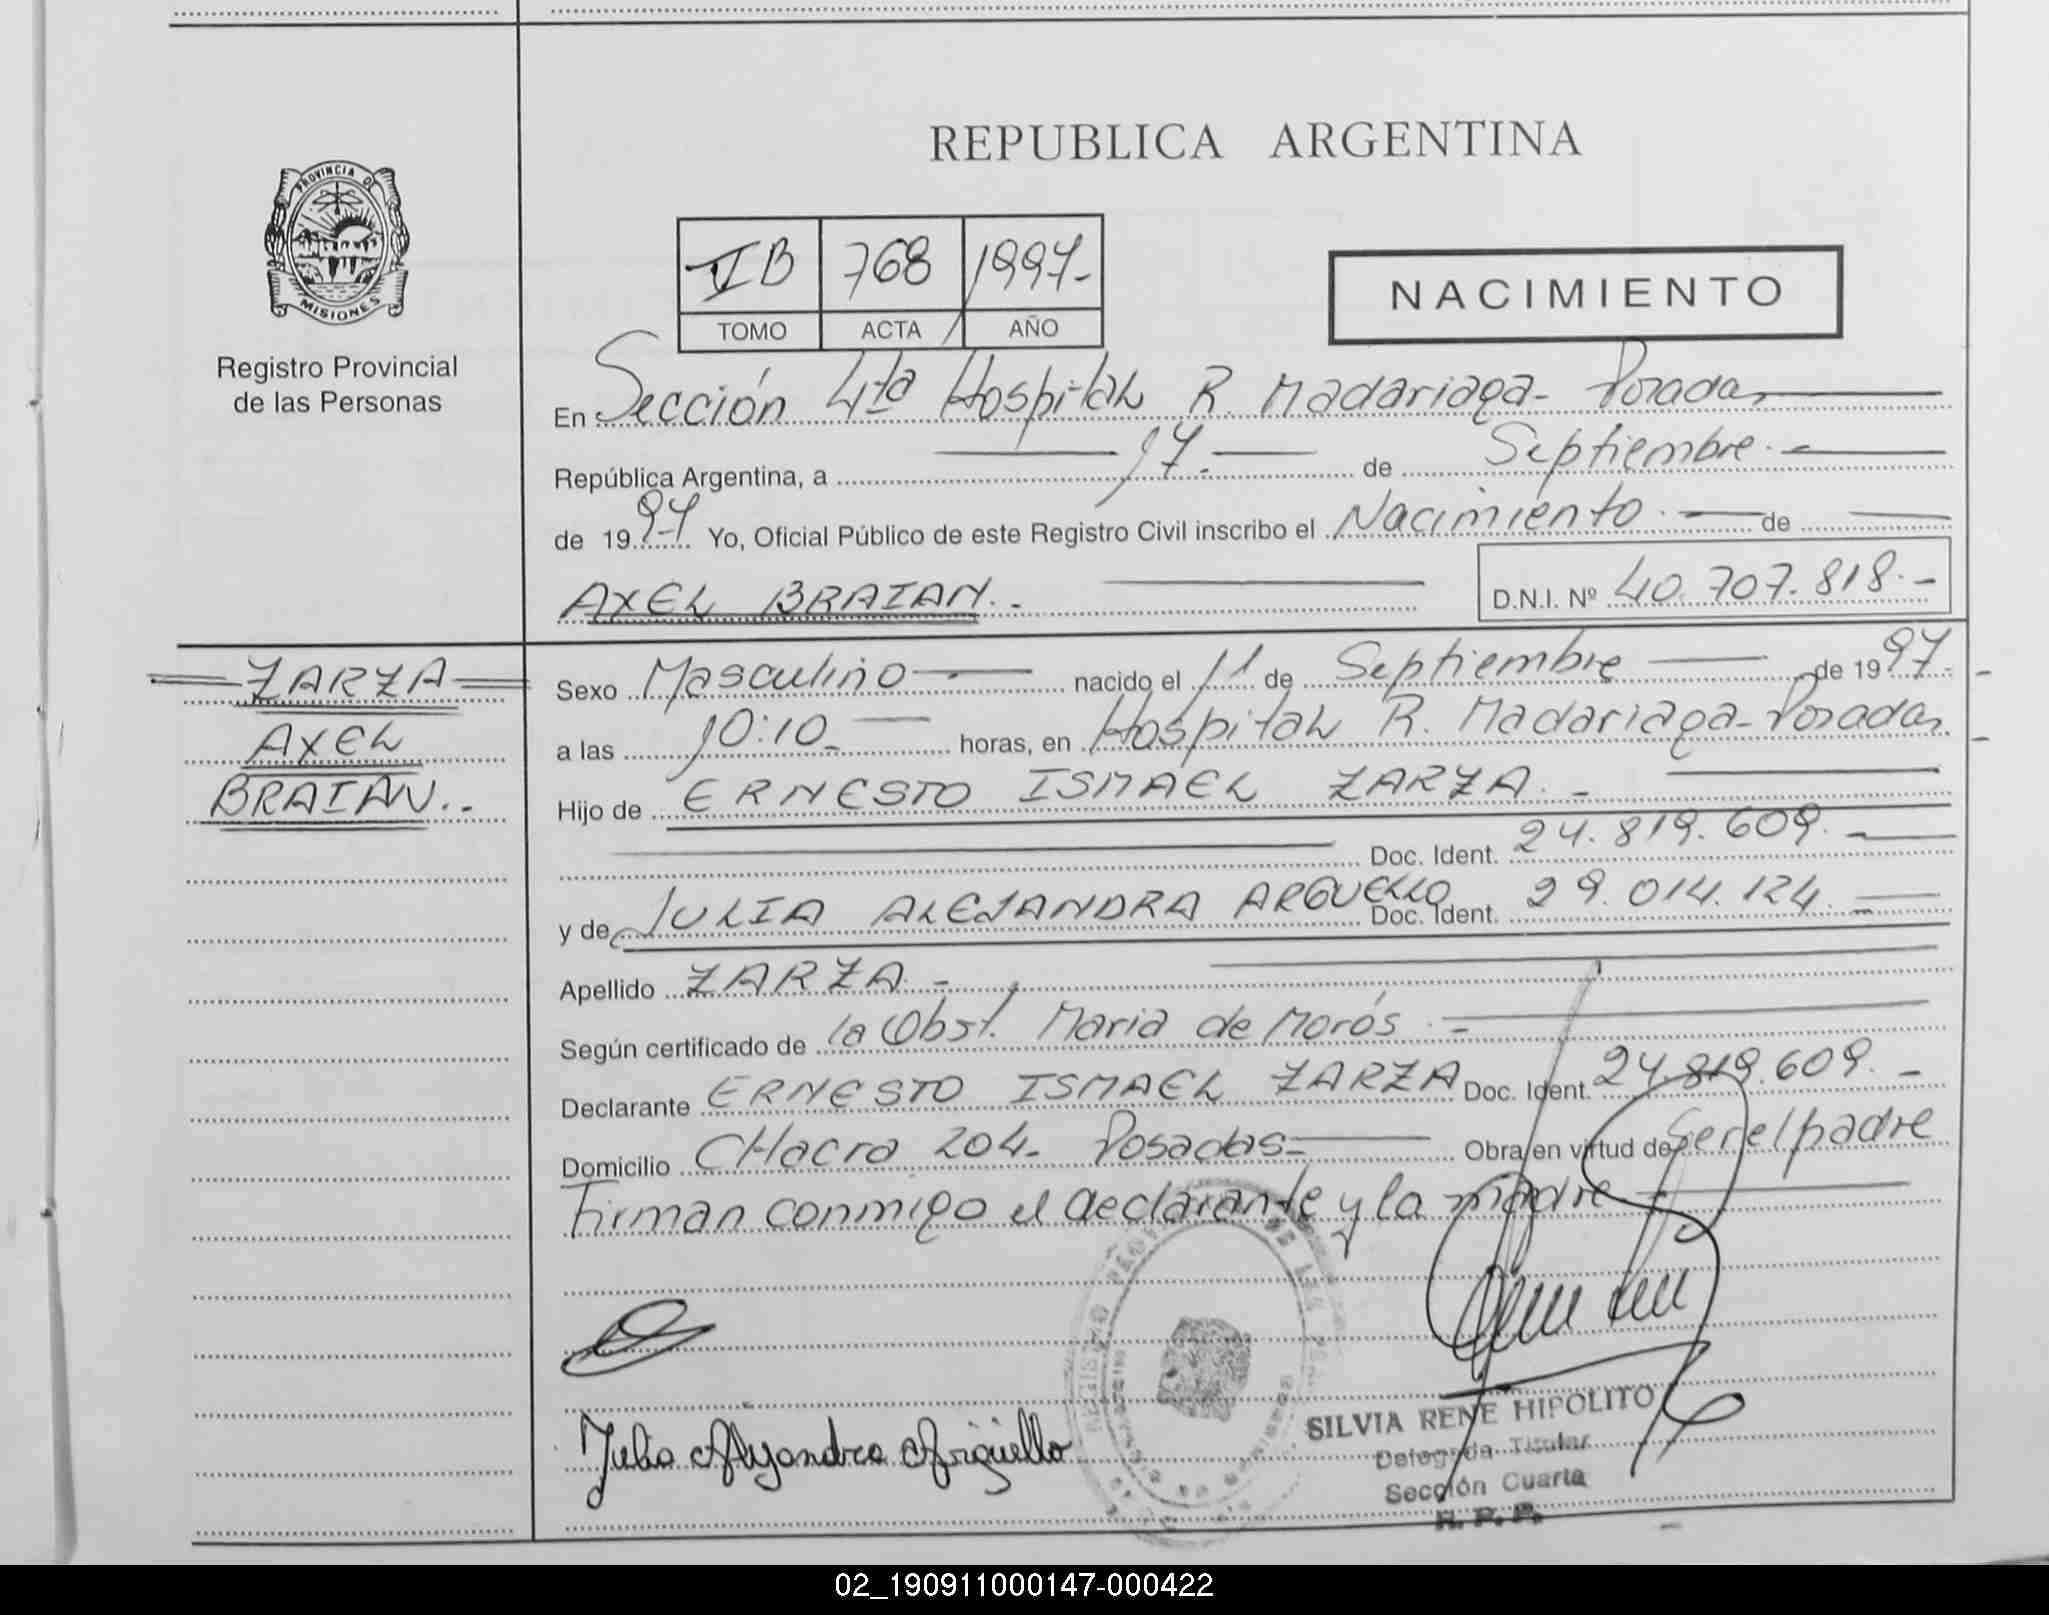 REPUBLICA ARGENTINA
PROVINCIA DE
MISIONES
Registro Provincial
de las Personas
768 1997.-
TOMO ACTA AÑO
NACIMIENTO
En Sección 4ta Hospital R. Madariaga - Posadas
República Argentina, a 17.- de Septiembre.-
de 1997 Yo, Oficial Público de este Registro Civil inscribo el Nacimiento.- de
AXEL BRAIAN.-
D.N.I. Nº 40.707.818.-
ZARZA
AXEL
BRAIAN..-
Sexo Masculino nacido el 11 de Septiembre de 1997.-
a las 10:10.- horas, en Hospital R. Madariaga - Posadas.-
Hijo de ERNESTO ISMAEL ZARZA.-
Doc. Ident. 24.819.609.-
y de JULIA ALEJANDRA ARGUELLO Doc. Ident. 29.014.124.-
Apellido ZARZA.-
Según certificado de la Obst. Maria de Morós.-
Declarante ERNESTO ISMAEL ZARZA Doc. Ident. 24.819.609.-
Domicilio CHacra 204.- Posadas.- Obra en virtud de Ser el padre
Firman conmigo el declarante y la madre
Julia Alejandra Argüello
SILVIA RENE HIPOLITO
Delegada Titular
Sección Cuarta
R. P. P.
02_190911000147-000422